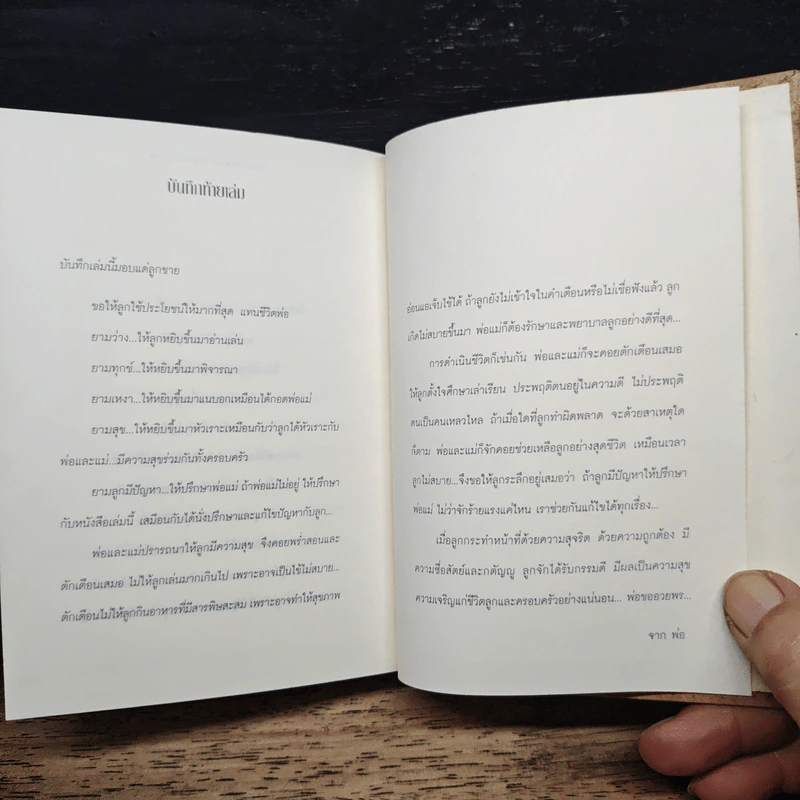 บันทึกท้ายเล่ม
บันทึกเล่มนี้มอบแด่ลูกชาย
ขอให้ลูกใช้ประโยชน์ให้มากที่สุด แทนชีวิตพ่อ
ยามว่าง...ให้ลูกหยิบขึ้นมาอ่านเล่น
ยามทุกข์...ให้หยิบขึ้นมาพิจารณา
ยามเหงา...ให้หยิบขึ้นมาแนบอกเหมือนได้กอดพ่อแม่
ยามสุข...ให้หยิบขึ้นมาหัวเราะเหมือนกับว่าลูกได้หัวเราะกับ
พ่อและแม่...มีความสุขร่วมกันทั้งครอบครัว
ยามลูกมีปัญหา...ให้ปรึกษาพ่อแม่ ถ้าพ่อแม่ไม่อยู่ ให้ปรึกษา
กับหนังสือเล่มนี้ เสมือนกับได้นั่งปรึกษาและแก้ไขปัญหากับลูก...
พ่อและแม่ปรารถนาให้ลูกมีความสุข จึงคอยพร่ำสอนและ
ตักเตือนเสมอ ไม่ให้ลูกเล่นมากเกินไป เพราะอาจเป็นไข้ไม่สบาย...
ตักเตือนไม่ให้ลูกกินอาหารที่มีสารพิษสะสม เพราะอาจทำให้สุขภาพ
อ่อนแอเจ็บไข้ได้ ถ้าลูกยังไม่เข้าใจในคำเตือนหรือไม่เชื่อฟังแล้ว ลูก
เกิดไม่สบายขึ้นมา พ่อแม่ก็ต้องรักษาและพยาบาลลูกอย่างดีที่สุด...
การดำเนินชีวิตก็เช่นกัน พ่อและแม่ก็จะคอยตักเตือนเสมอ
ให้ลูกตั้งใจศึกษาเล่าเรียน ประพฤติตนอยู่ในความดี ไม่ประพฤติ
ตนเป็นคนเหลวไหล ถ้าเมื่อใดที่ลูกทำผิดพลาด จะด้วยสาเหตุใด
ก็ตาม พ่อและแม่ก็จักคอยช่วยเหลือลูกอย่างสุดชีวิต เหมือนเวลา
ลูกไม่สบาย...จึงขอให้ลูกระลึกอยู่เสมอว่า ถ้าลูกมีปัญหาให้ปรึกษา
พ่อแม่ ไม่ว่าจักร้ายแรงแค่ไหน เราช่วยกันแก้ไขได้ทุกเรื่อง...
เมื่อลูกกระทำหน้าที่ด้วยความสุจริต ด้วยความถูกต้อง มี
ความซื่อสัตย์และกตัญญู ลูกจักได้รับกรรมดี มีผลเป็นความสุข
ความเจริญแก่ชีวิตลูกและครอบครัวอย่างแน่นอน... พ่อขออวยพร...
จาก พ่อ